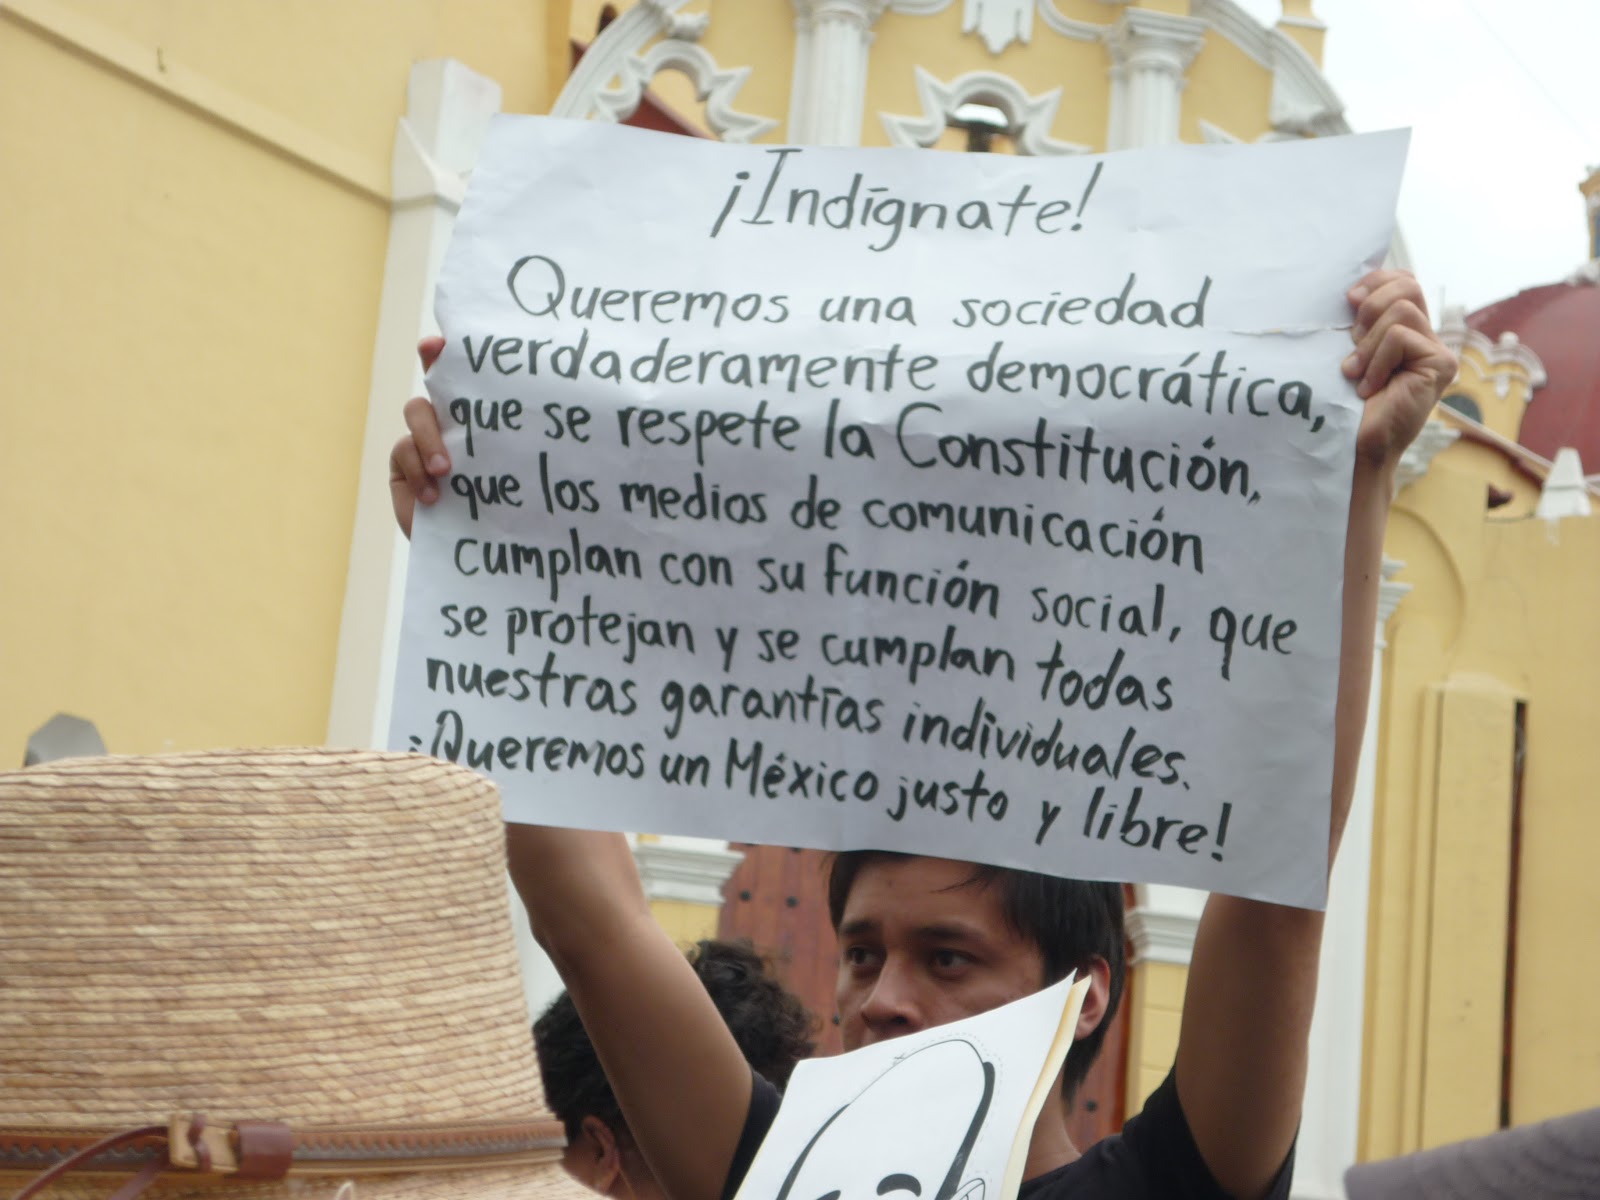 ¡Indígnate!
Queremos una sociedad
verdaderamente democrática,
que se respete la Constitución,
que los medios de comunicación
cumplan con su función social, que
se protejan y se cumplan todas
nuestras garantías individuales.
¡Queremos un México justo y libre!